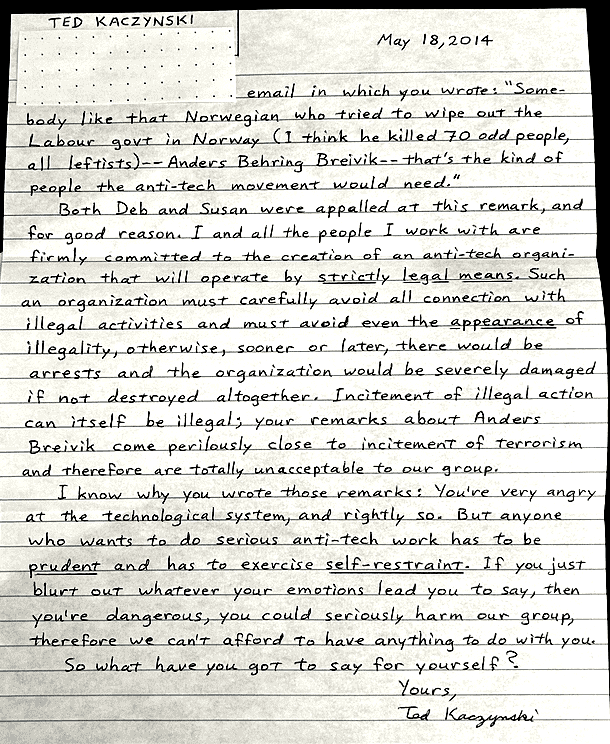 TED KACZYNSKI
May 18, 2014
email in which you wrote: "Some-
body like that Norwegian who tried to wipe out the
Labour govt in Norway (I think he killed 70 odd people,
all leftists)--Anders Behring Breivik--that's the kind of
people the anti-tech movement would need."
Both Deb and Susan were appalled at this remark, and
for good reason. I and all the people I work with are
firmly committed to the creation of an anti-tech organi-
zation that will operate by strictly legal means. Such
an organization must carefully avoid all connection with
illegal activities and must avoid even the appearance of
illegality, otherwise, sooner or later, there would be
arrests and the organization would be severely damaged
if not destroyed altogether. Incitement of illegal action
can itself be illegal; your remarks about Anders
Breivik come perilously close to incitement of terrorism
and therefore are totally unacceptable to our group.
I know why you wrote those remarks: You're very angry
at the technological system, and rightly so. But anyone
who wants to do serious anti-tech work has to be
prudent and has to exercise self-restraint. If you just
blurt out whatever your emotions lead you to say, then
you're dangerous, you could seriously harm our group,
therefore we can't afford to have anything to do with you.
So what have you got to say for yourself?
Yours,
Ted Kaczynski